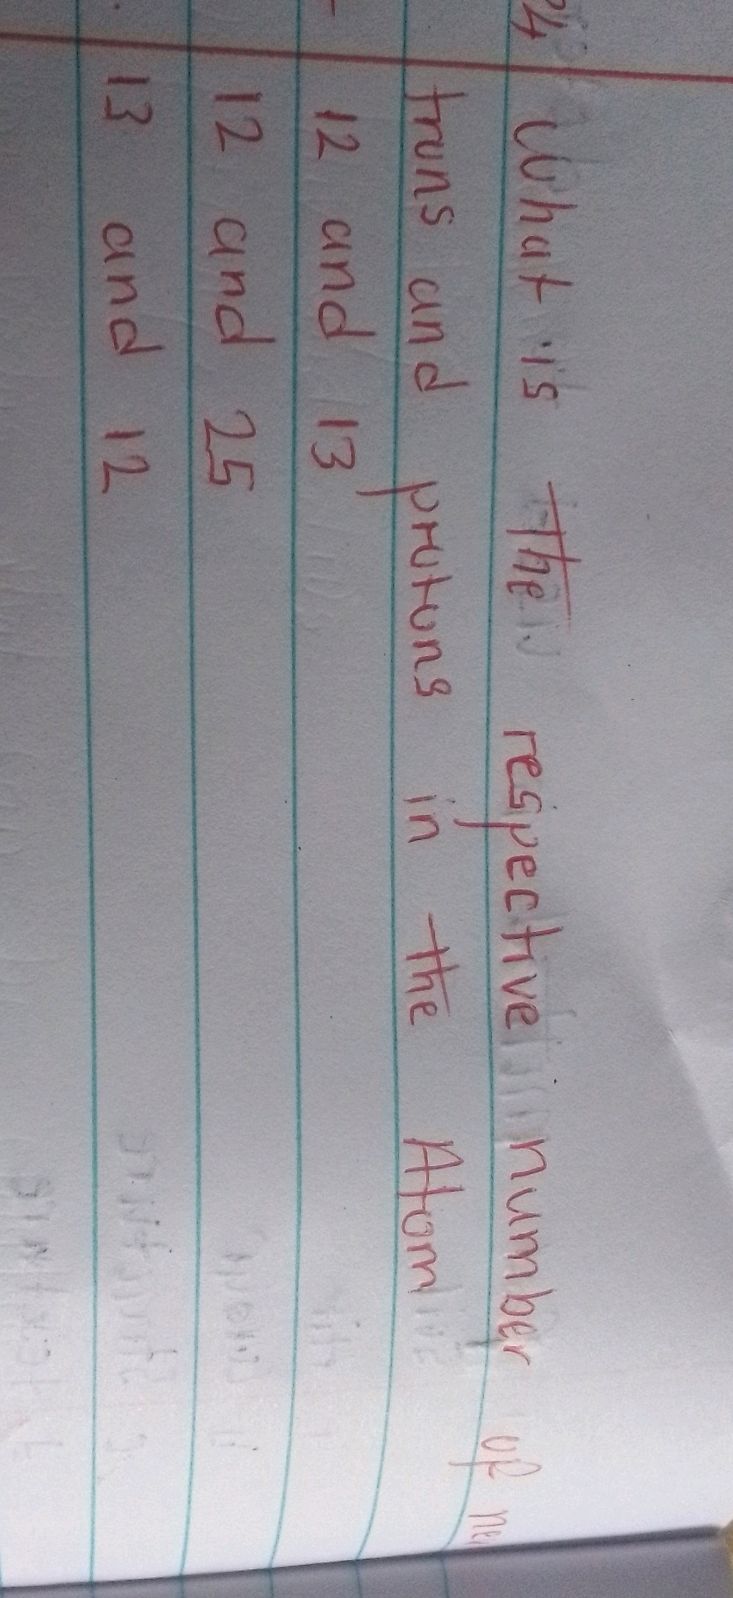 24 What is The respective number of ne
truns and protons in the Atom
12 and 13
12 and 25
13 and 12